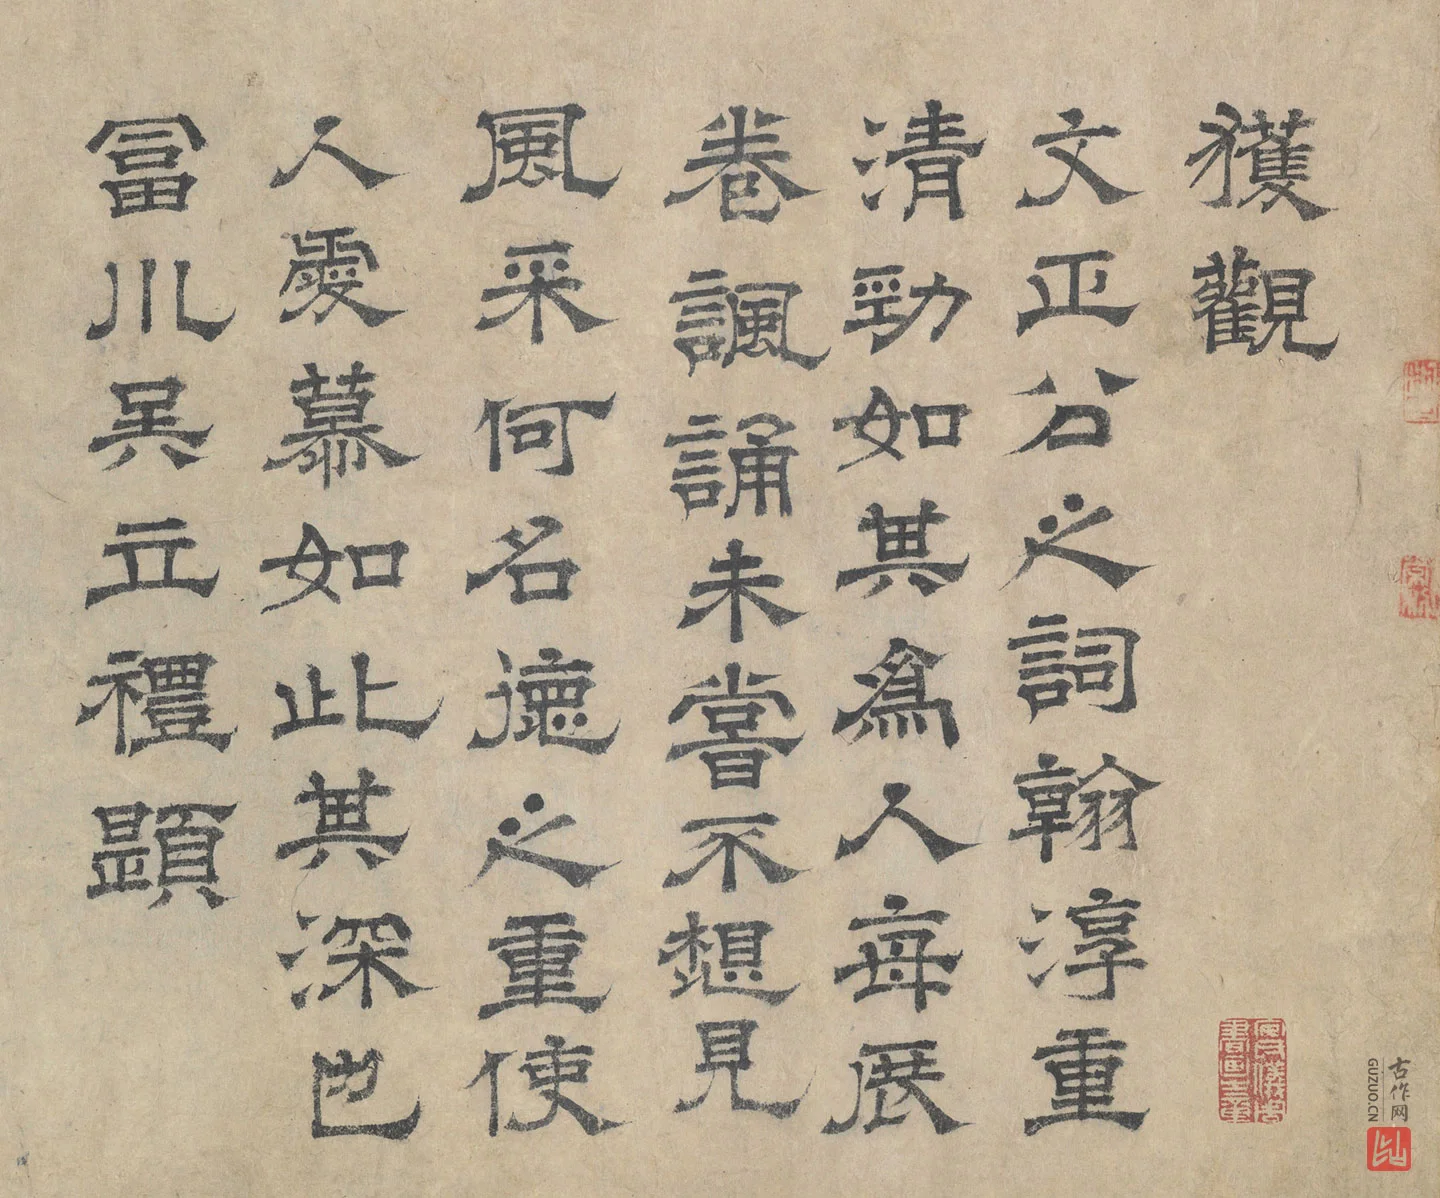 獲觀
文正公之詞翰淳重
清勁如其為人每展
卷諷誦未嘗不想見
風采何名德之重使
人愛慕如此其深也
富川吳立禮題
古作网
GUZUO.CN